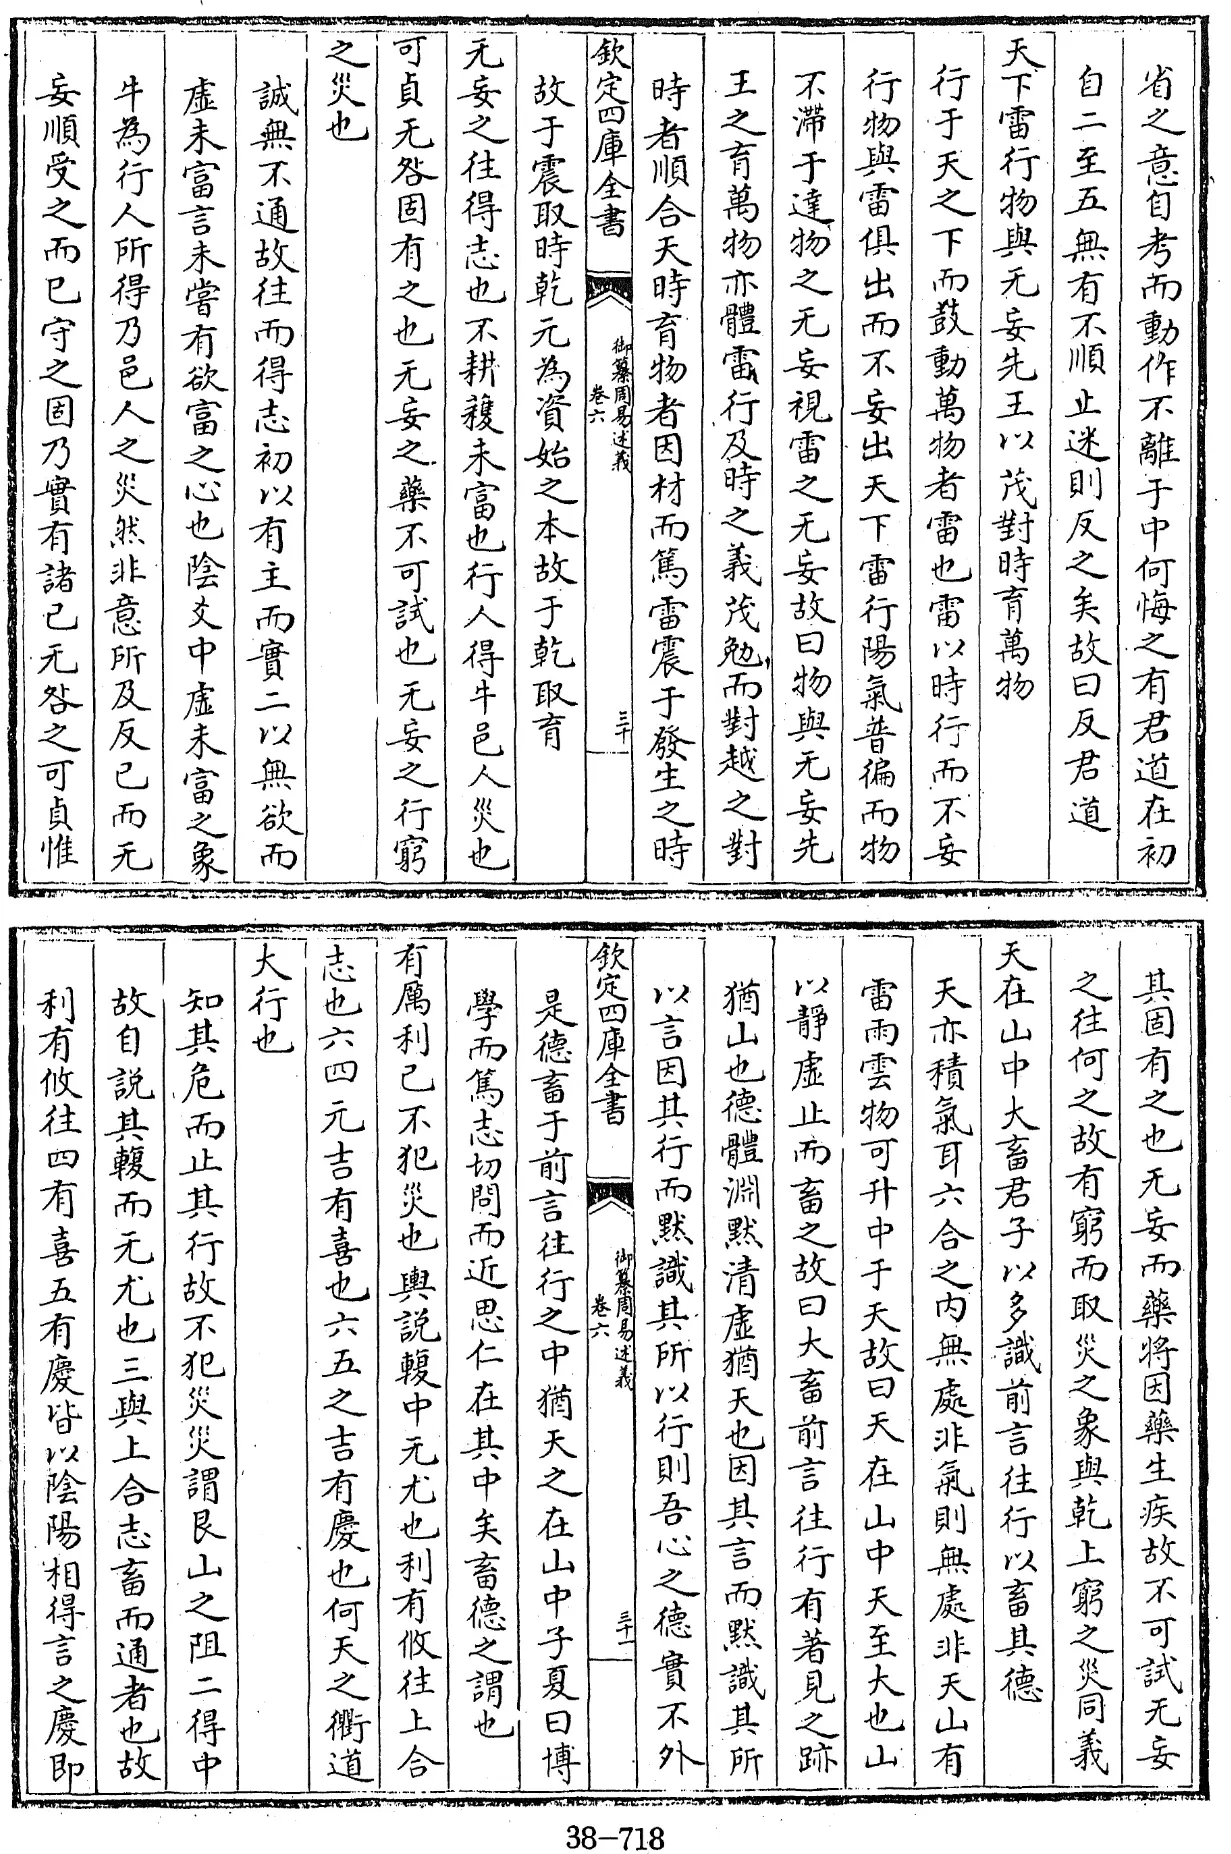 省之意自考而動作不離于中何悔之有君道在初
自二至五無有不順止迷則反之矣故曰反君道
天下雷行物與无妄先王以茂對時育萬物
行于天之下而鼓動萬物者雷也雷以時行而不妄
行物與雷俱出而不妄出天下雷行陽氣普徧而物
不滯于達物之无妄視雷之无妄故曰物與无妄先
王之育萬物亦體雷行及時之義茂勉而對越之對
時者順合天時育物者因材而篤雷震于發生之時
欽定四庫全書
御纂周易述義
卷六
三十
故于震取時乾元為資始之本故于乾取育
无妄之往得志也不耕穫未富也行人得牛邑人災也
可貞无咎固有之也无妄之藥不可試也无妄之行窮
之災也
誠無不通故往而得志初以有主而實二以無欲而
虛未富言未嘗有欲富之心也陰爻中虛未富之象
牛為行人所得乃邑人之災然非意所及反已而无
妄順受之而已守之固乃實有諸己无咎之可貞惟
其固有之也无妄而藥將因藥生疾故不可試无妄
之往何之故有窮而取災之象與乾上窮之災同義
天在山中大畜君子以多識前言往行以畜其德
天亦積氣耳六合之内無處非氣則無處非天山有
雷雨雲物可升中于天故曰天在山中天至大也山
以靜虛止而畜之故曰大畜前言往行有著見之跡
猶山也德體淵默清虛猶天也因其言而默識其所
以言因其行而默識其所以行則吾心之德實不外
欽定四庫全書
御纂周易述義
卷六
三十一
是德畜于前言往行之中猶天之在山中子夏曰博
學而篤志切問而近思仁在其中矣畜德之謂也
有厲利己不犯災也輿説輹中无尤也利有攸往上合
志也六四元吉有喜也六五之吉有慶也何天之衢道
大行也
知其危而止其行故不犯災災謂艮山之阻二得中
故自説其輹而无尤也三與上合志畜而通者也故
利有攸往四有喜五有慶皆以陰陽相得言之慶即
38-718